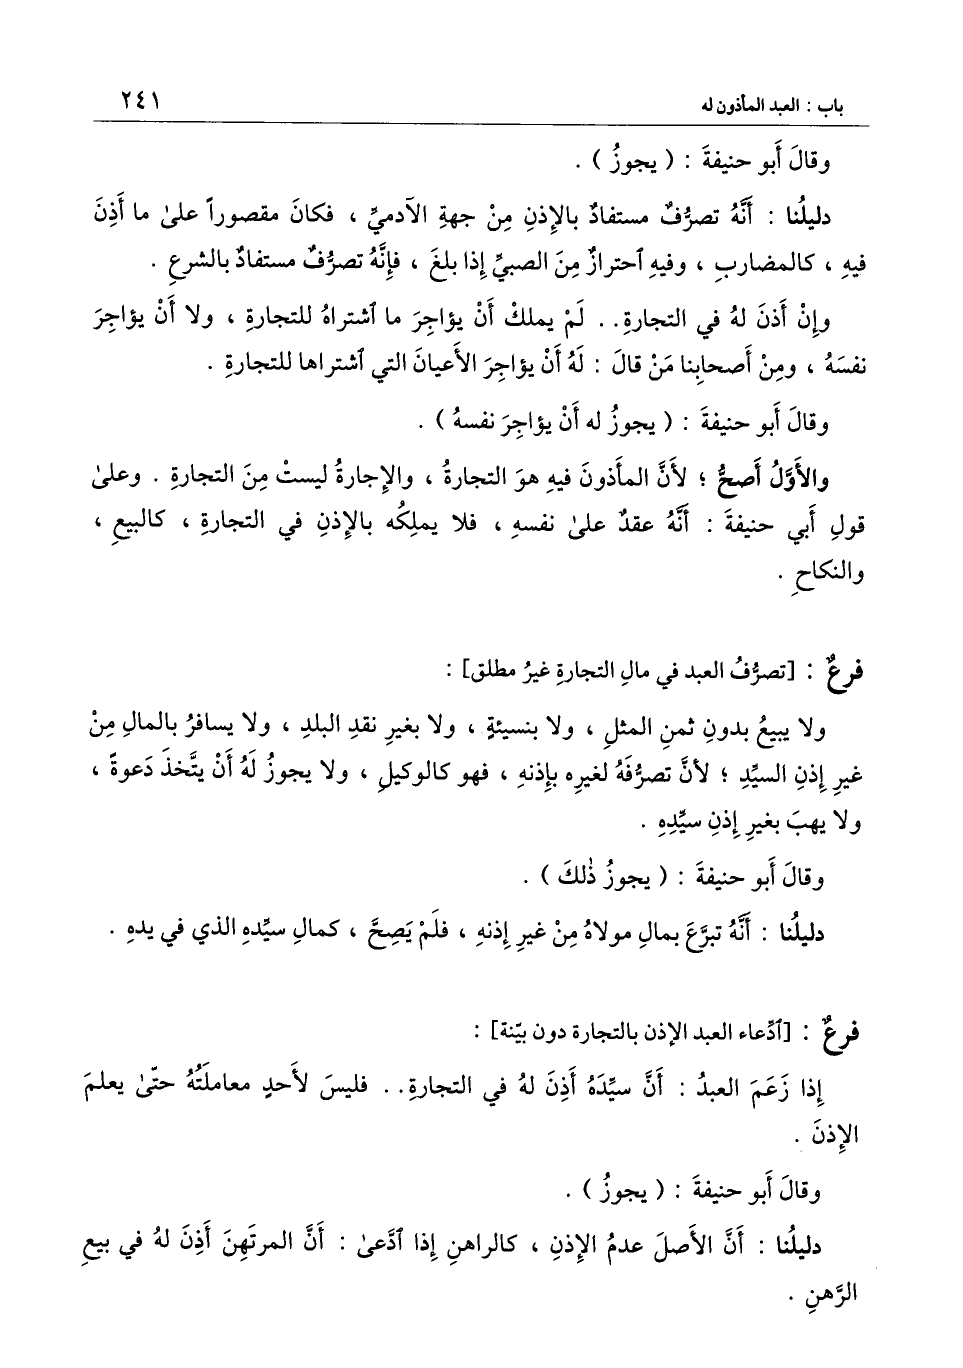 باب : العبد المأذون له ٢٤١
وقالَ أَبو حنيفةَ : ( يجوزُ ) .
دليلُنا : أَنَّهُ تصرُّفٌ مستفادٌ بالإِذنِ مِنْ جهةِ الآدميِّ ، فكانَ مقصوراً علىٰ ما أَذِنَ
فيهِ ، كالمضاربِ ، وفيهِ ٱحترازٌ مِنَ الصبيِّ إِذا بلغَ ، فإِنَّهُ تصرُّفٌ مستفادٌ بالشرعِ .
وإِنْ أَذنَ لهُ في التجارةِ . . لَمْ يملكْ أَنْ يؤاجِرَ ما ٱشتراهُ للتجارةِ ، ولا أَنْ يؤاجِرَ
نفسَهُ ، ومِنْ أَصحابِنا مَنْ قالَ : لَهُ أَنْ يؤاجِرَ الأَعيانَ التي ٱشتراها للتجارةِ .
وقالَ أَبو حنيفةَ : ( يجوزُ له أَنْ يؤاجِرَ نفسهُ ) .
والأَوَّلُ أَصحُّ ؛ لأَنَّ المأذونَ فيهِ هوَ التجارةُ ، والإِجارةُ ليستْ مِنَ التجارةِ . وعلىٰ
قولِ أَبي حنيفةَ : أَنَّهُ عقدٌ علىٰ نفسهِ ، فلا يملِكُه بالإِذنِ في التجارةِ ، كالبيعِ ،
والنكاحِ .
فرعٌ : [تصرُّفُ العبد في مالِ التجارةِ غيرُ مطلق] :
ولا يبيعُ بدونِ ثمنِ المثلِ ، ولا بنسيئةٍ ، ولا بغيرِ نقدِ البلدِ ، ولا يسافرُ بالمالِ مِنْ
غيرِ إِذنِ السيِّدِ ؛ لأَنَّ تصرُّفَهُ لغيرِه بإِذنهِ ، فهو كالوكيلِ ، ولا يجوزُ لَهُ أَنْ يتَّخذَ دَعوةً ،
ولا يهبَ بغيرِ إِذنِ سيِّدِهِ .
وقالَ أَبو حنيفةَ : ( يجوزُ ذٰلكَ ) .
دليلُنا : أَنَّهُ تبرَّعَ بمالِ مولاهُ مِنْ غيرِ إِذنهِ ، فلَمْ يَصِحَّ ، كمالِ سيِّدهِ الذي في يدهِ .
فرعٌ : [ٱدِّعاء العبد الإذن بالتجارة دون بيّنة] :
إِذا زَعَمَ العبدُ : أَنَّ سيِّدَهُ أَذِنَ لهُ في التجارةِ . . فليسَ لأَحدٍ معاملَتُهُ حتّىٰ يعلمَ
الإِذنَ .
وقالَ أَبو حنيفةَ : ( يجوزُ ) .
دليلُنا : أَنَّ الأَصلَ عدمُ الإِذنِ ، كالراهنِ إِذا ٱدَّعىٰ : أَنَّ المرتَهِنَ أَذِنَ لهُ في بيعِ
الرَّهنِ .